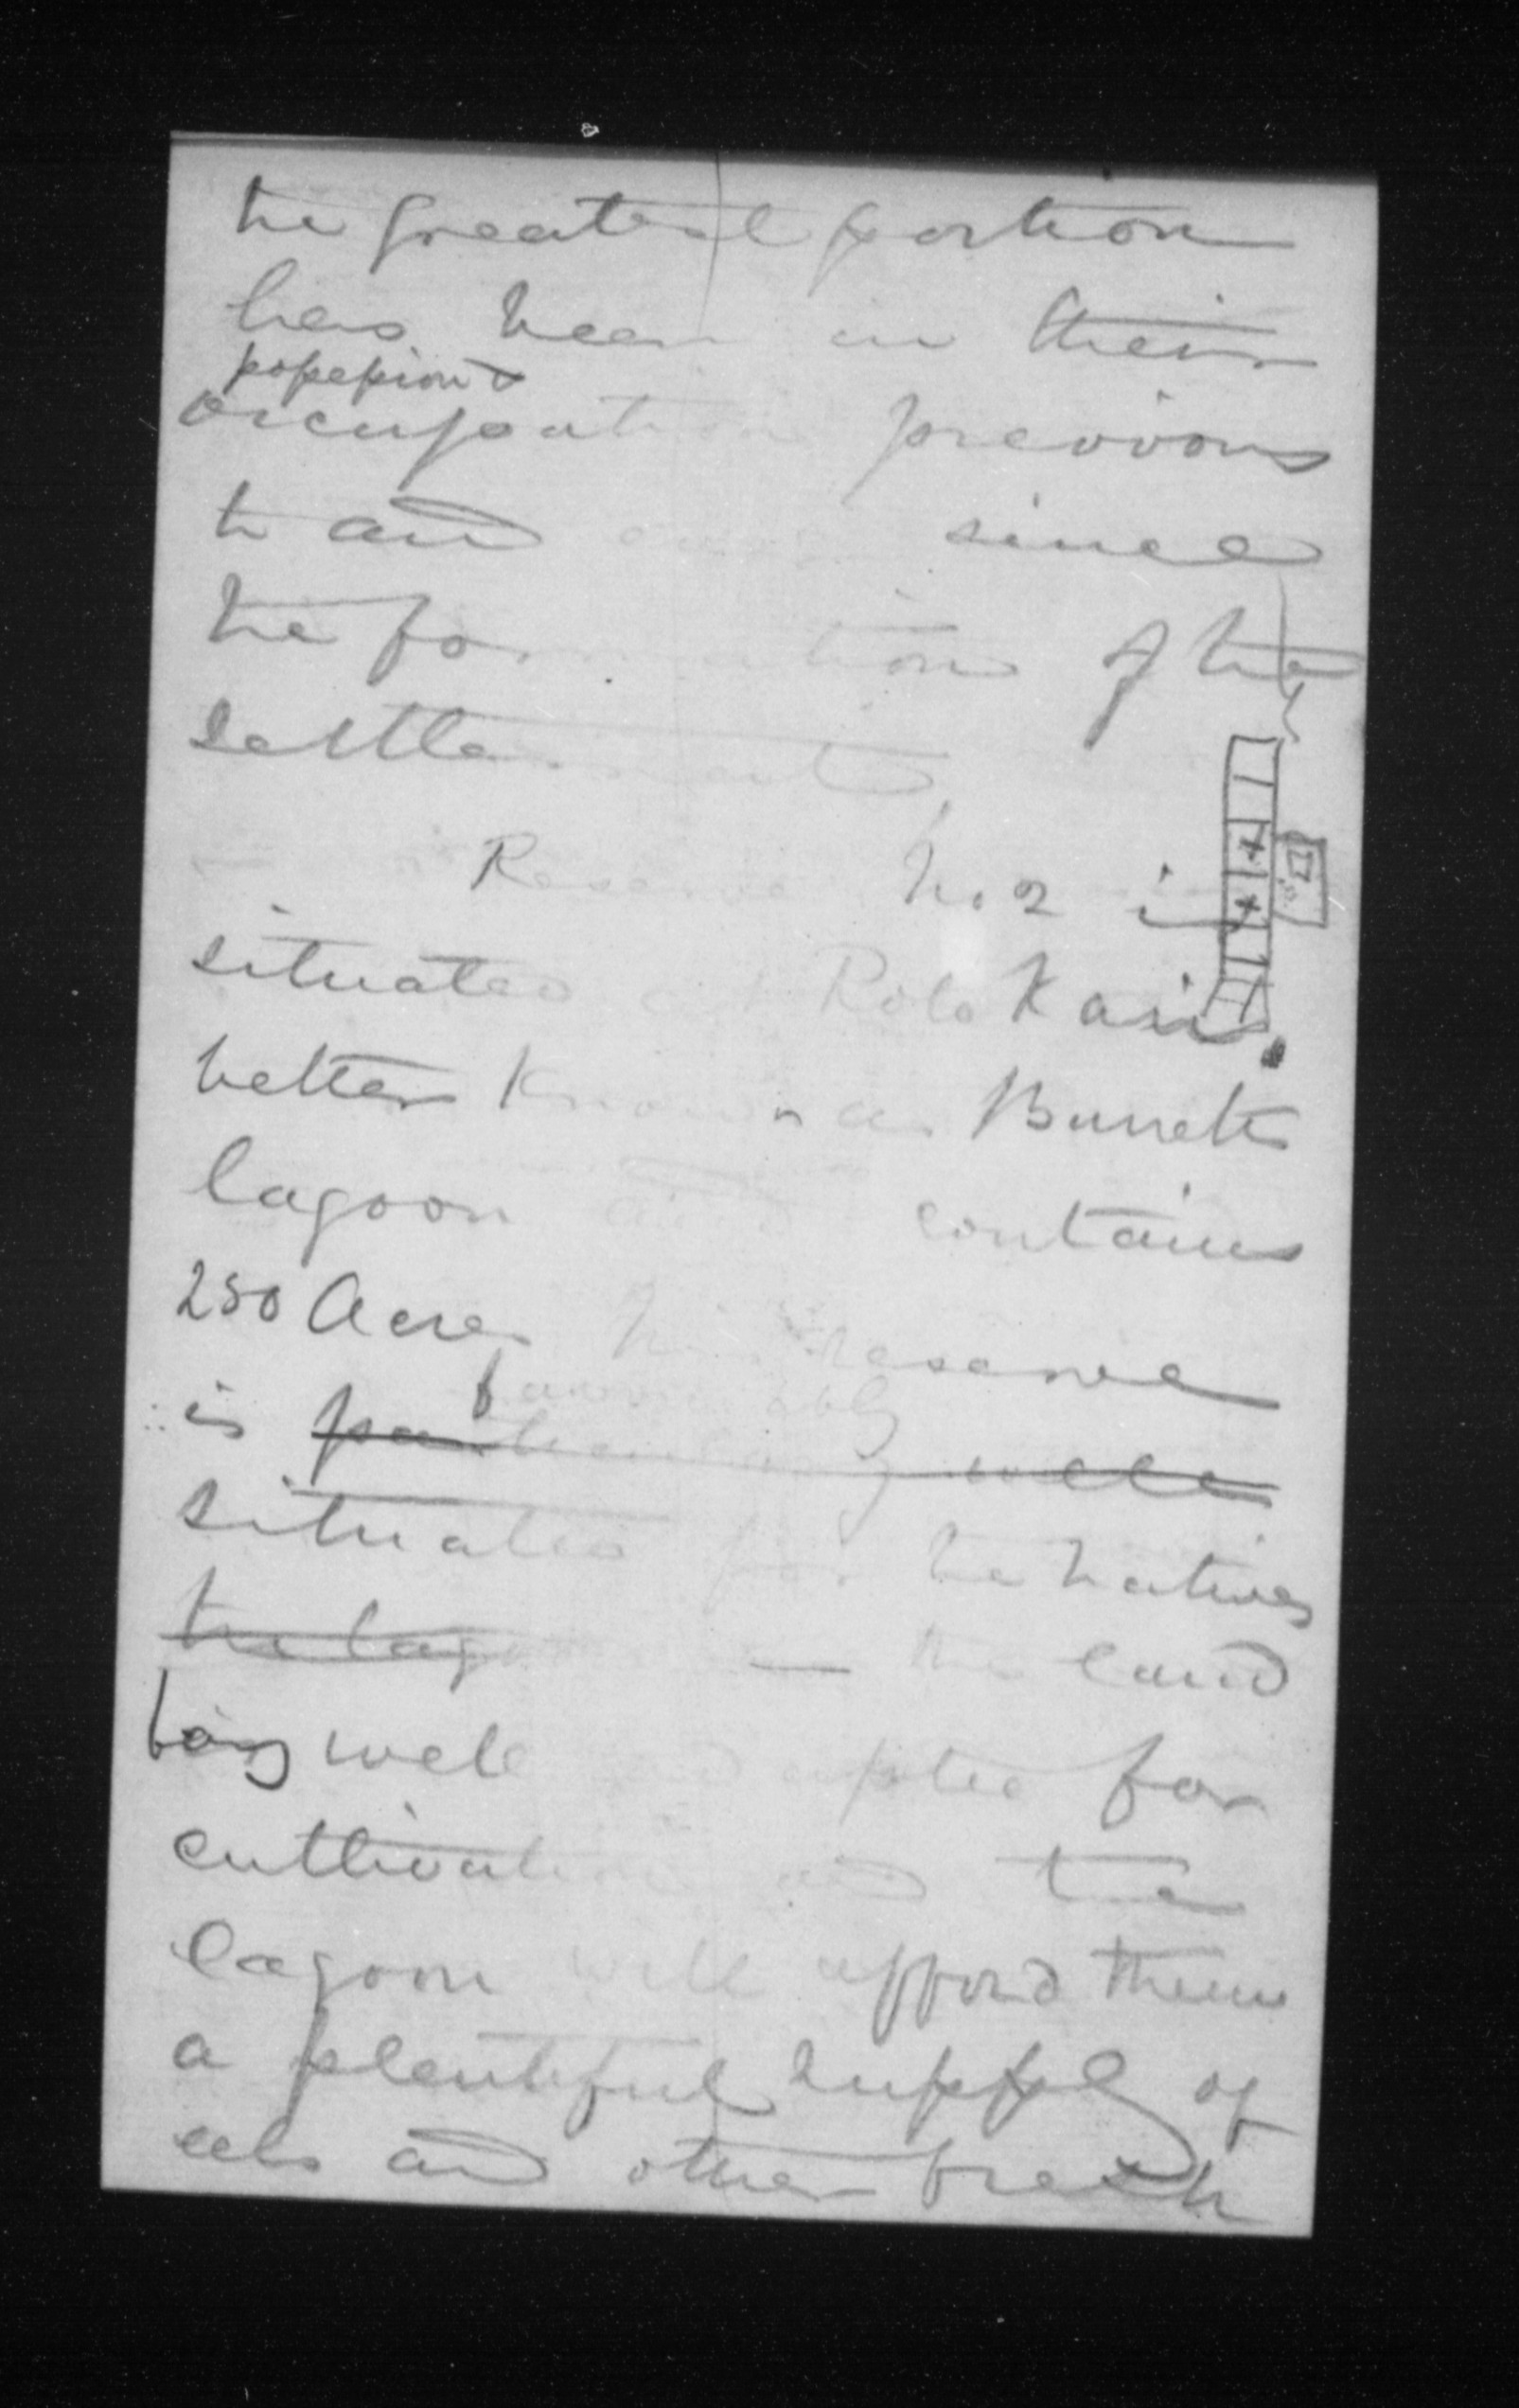 the greatest portion
has been in their
possession &
occupation previous
to and ever since
the formation of the
settlement.
Reserve No. 2 is
situated at Roto Kair
better known as Burnett
lagoon and contains
250 Acres this reserve
favourably
is particularly well
situated for the natives
the lagoon — the land
being well adapted for
cultivation and the
lagoon will afford them
a plentiful supply of
eels and other fresh